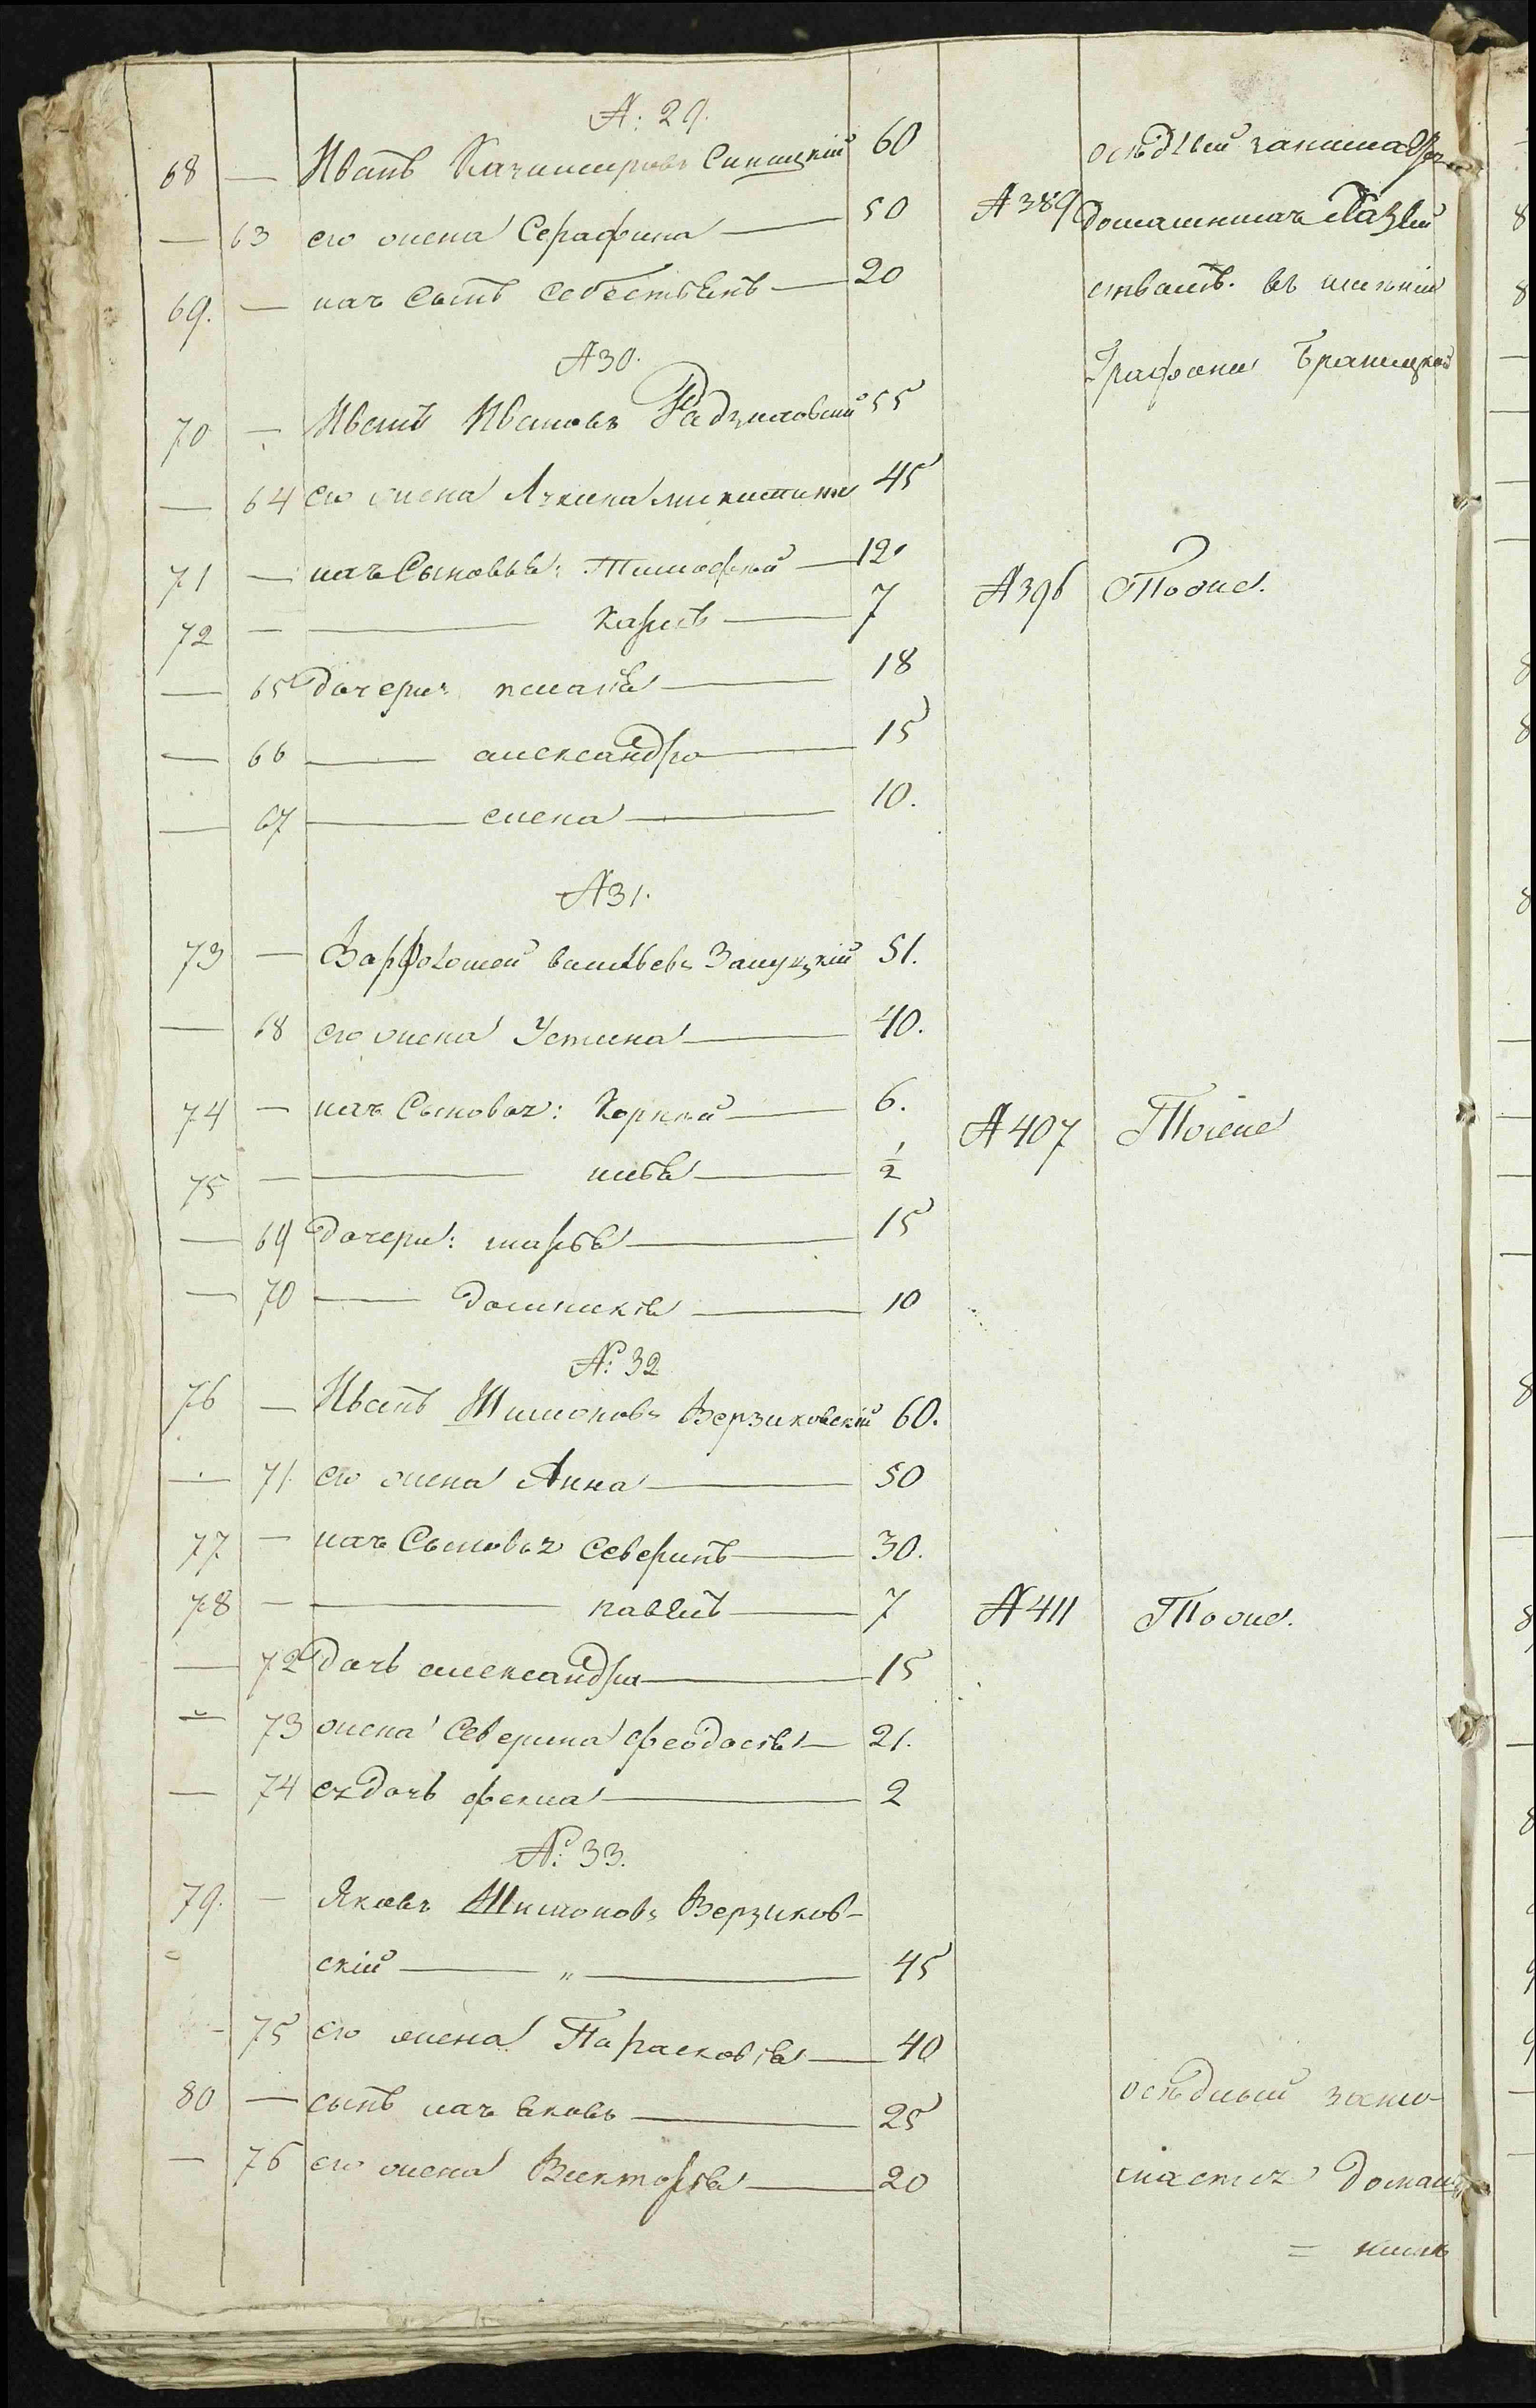 №: 29.
68 — Иванъ Казимировъ Синицкій 60
осѣдлый занима
— 63 его жена Серафина — 50 № 389 домашнимъ
69. — ихъ сынъ Себестьянъ — 20
ствомъ. въ имѣніи
№ 30.
Графини Браницкой
70 — Иванъ Ивановъ Радзиловскій 55
— 64 его жена 45
71 — ихъ Сыновья: Тимофей — 12.
№ 396 Тоже.
72 — — Карпъ — 7
— 65 дочери: — 18
— 66 — александра — 15
— 67 — елена — 10.
№ 31.
73 — Варфоломей васильевъ Залуцкій 51.
— 68 его жена Устина — 40.
74 — ихъ Сыновья: Корней — 6.
№ 407 Тоже
75 — — — 1/2
— 69 дочери: марья — 15
— 70 — доминикія — 10
№: 32
76 — Иванъ Шимоновъ Верзиковскій 60.
— 71 его жена Анна — 50
77 — ихъ Сыновья Северинъ — 30.
78 — — павелъ — 7 № 411 Тоже.
— 72 дочь александра — 15
— 73 жена Северина феодосія — 21.
— 74 ихъ дочь фекла — 2
№: 33.
79. — Яковъ Шимоновъ Верзиков-
скій — „ — 45
— 75 его жена Парасковія — 40
80 — сынъ ихъ яковъ — 25
осѣдлый зани-
— 76 его жена Викторія — 20
мается домаш
= нимъ